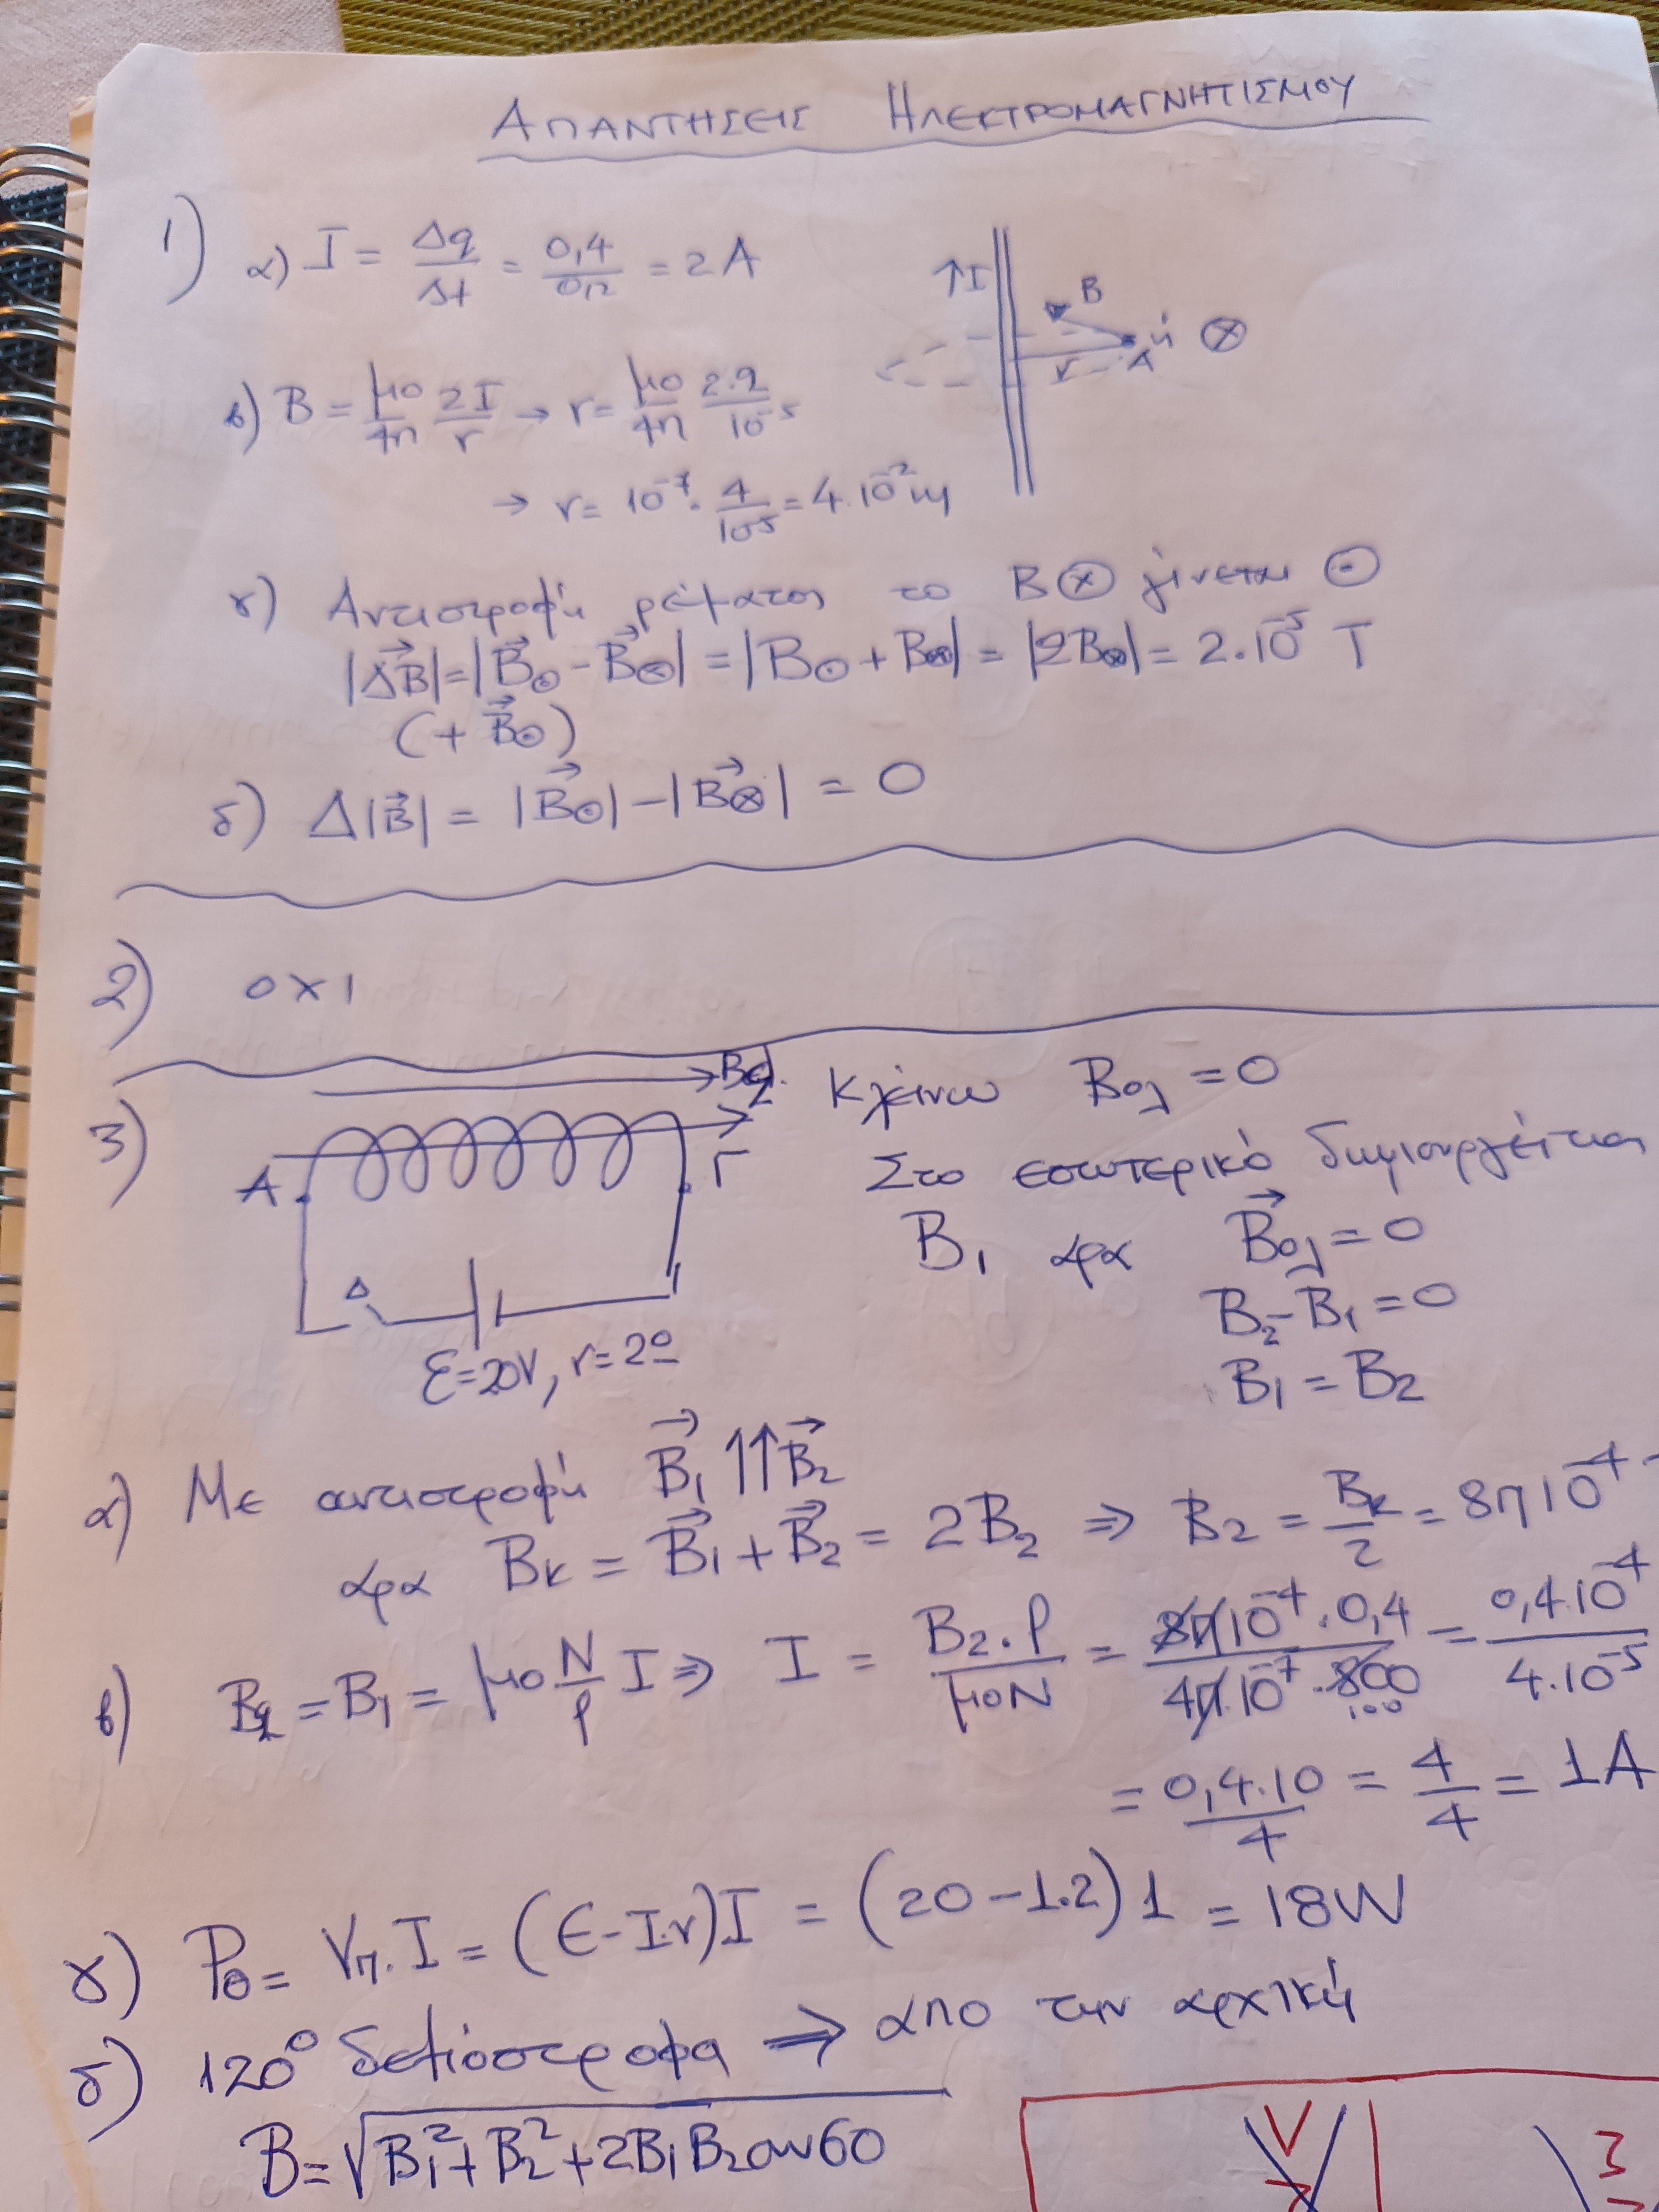 ΑΠΑΝΤΗΣΕΙΣ ΗΛΕΚΤΡΟΜΑΓΝΗΤΙΣΜΟΥ
1) α) I = Δq/Δt = 0,4/0,2 = 2 A
↑I B r A ή ⊗
β) B = μ0/4π 2I/r → r = μ0/4π 2·2/10⁻⁵
→ r = 10⁻⁷ · 4/10⁻⁵ = 4·10⁻² m
γ) Αντιστροφή ρεύματος το B⊗ γίνεται ⊙
|ΔB⃗| = |B⃗⊙ - B⃗⊗| = |B⊙ + B⊗| = |2B⊗| = 2·10⁻⁵ T
(+ B⃗⊙)
δ) Δ|B⃗| = |B⃗⊙| - |B⃗⊗| = 0
2) οχι
3) Κλείνω Bολ = 0
A Γ
Δ
ε=20V, r=2Ω
Στο εσωτερικό δημιουργείται
B₁ αρα B⃗ολ = 0
B₂ - B₁ = 0
B₁ = B₂
α) Με αντιστροφή B⃗₁ ↑↑ B⃗₂
αρα Bκ = B⃗₁ + B⃗₂ = 2B₂ ⇒ B₂ = Bκ/2 = 8π10⁻⁴
β) B₂ = B₁ = μ0 N/ℓ I ⇒ I = B₂·ℓ/μ0N = 8π10⁻⁴·0,4/4π·10⁻⁷·800 = 0,4·10⁻⁴/4·10⁻⁵
100
= 0,4·10/4 = 4/4 = 1A
γ) Pθ = Vπ·I = (ε-I·r)I = (20-1·2)1 = 18W
δ) 120° δεξιόστροφα ⇒ απο την αρχική
B = √B₁² + B₂² + 2B₁B₂συν60
V
3